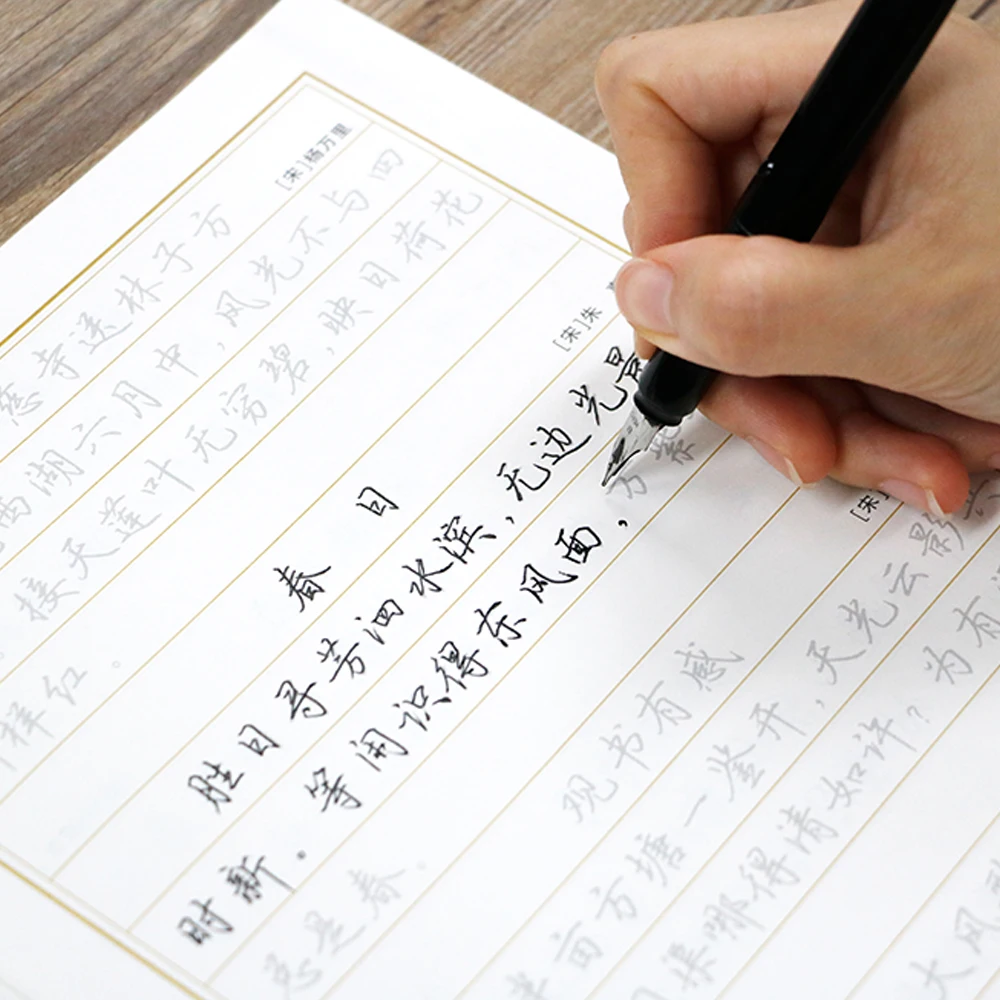 [宋]杨万里
慈寺送林子方
西湖六月中，风光不与四
接天莲叶无穷碧，映日荷花
样红。
[宋]朱
春日
胜日寻芳泗水滨，无边光景
时新。等闲识得东风面，万紫
总是春。
[宋]
观书有感
半亩方塘一鉴开，天光云影共
渠哪得清如许？为有
大风